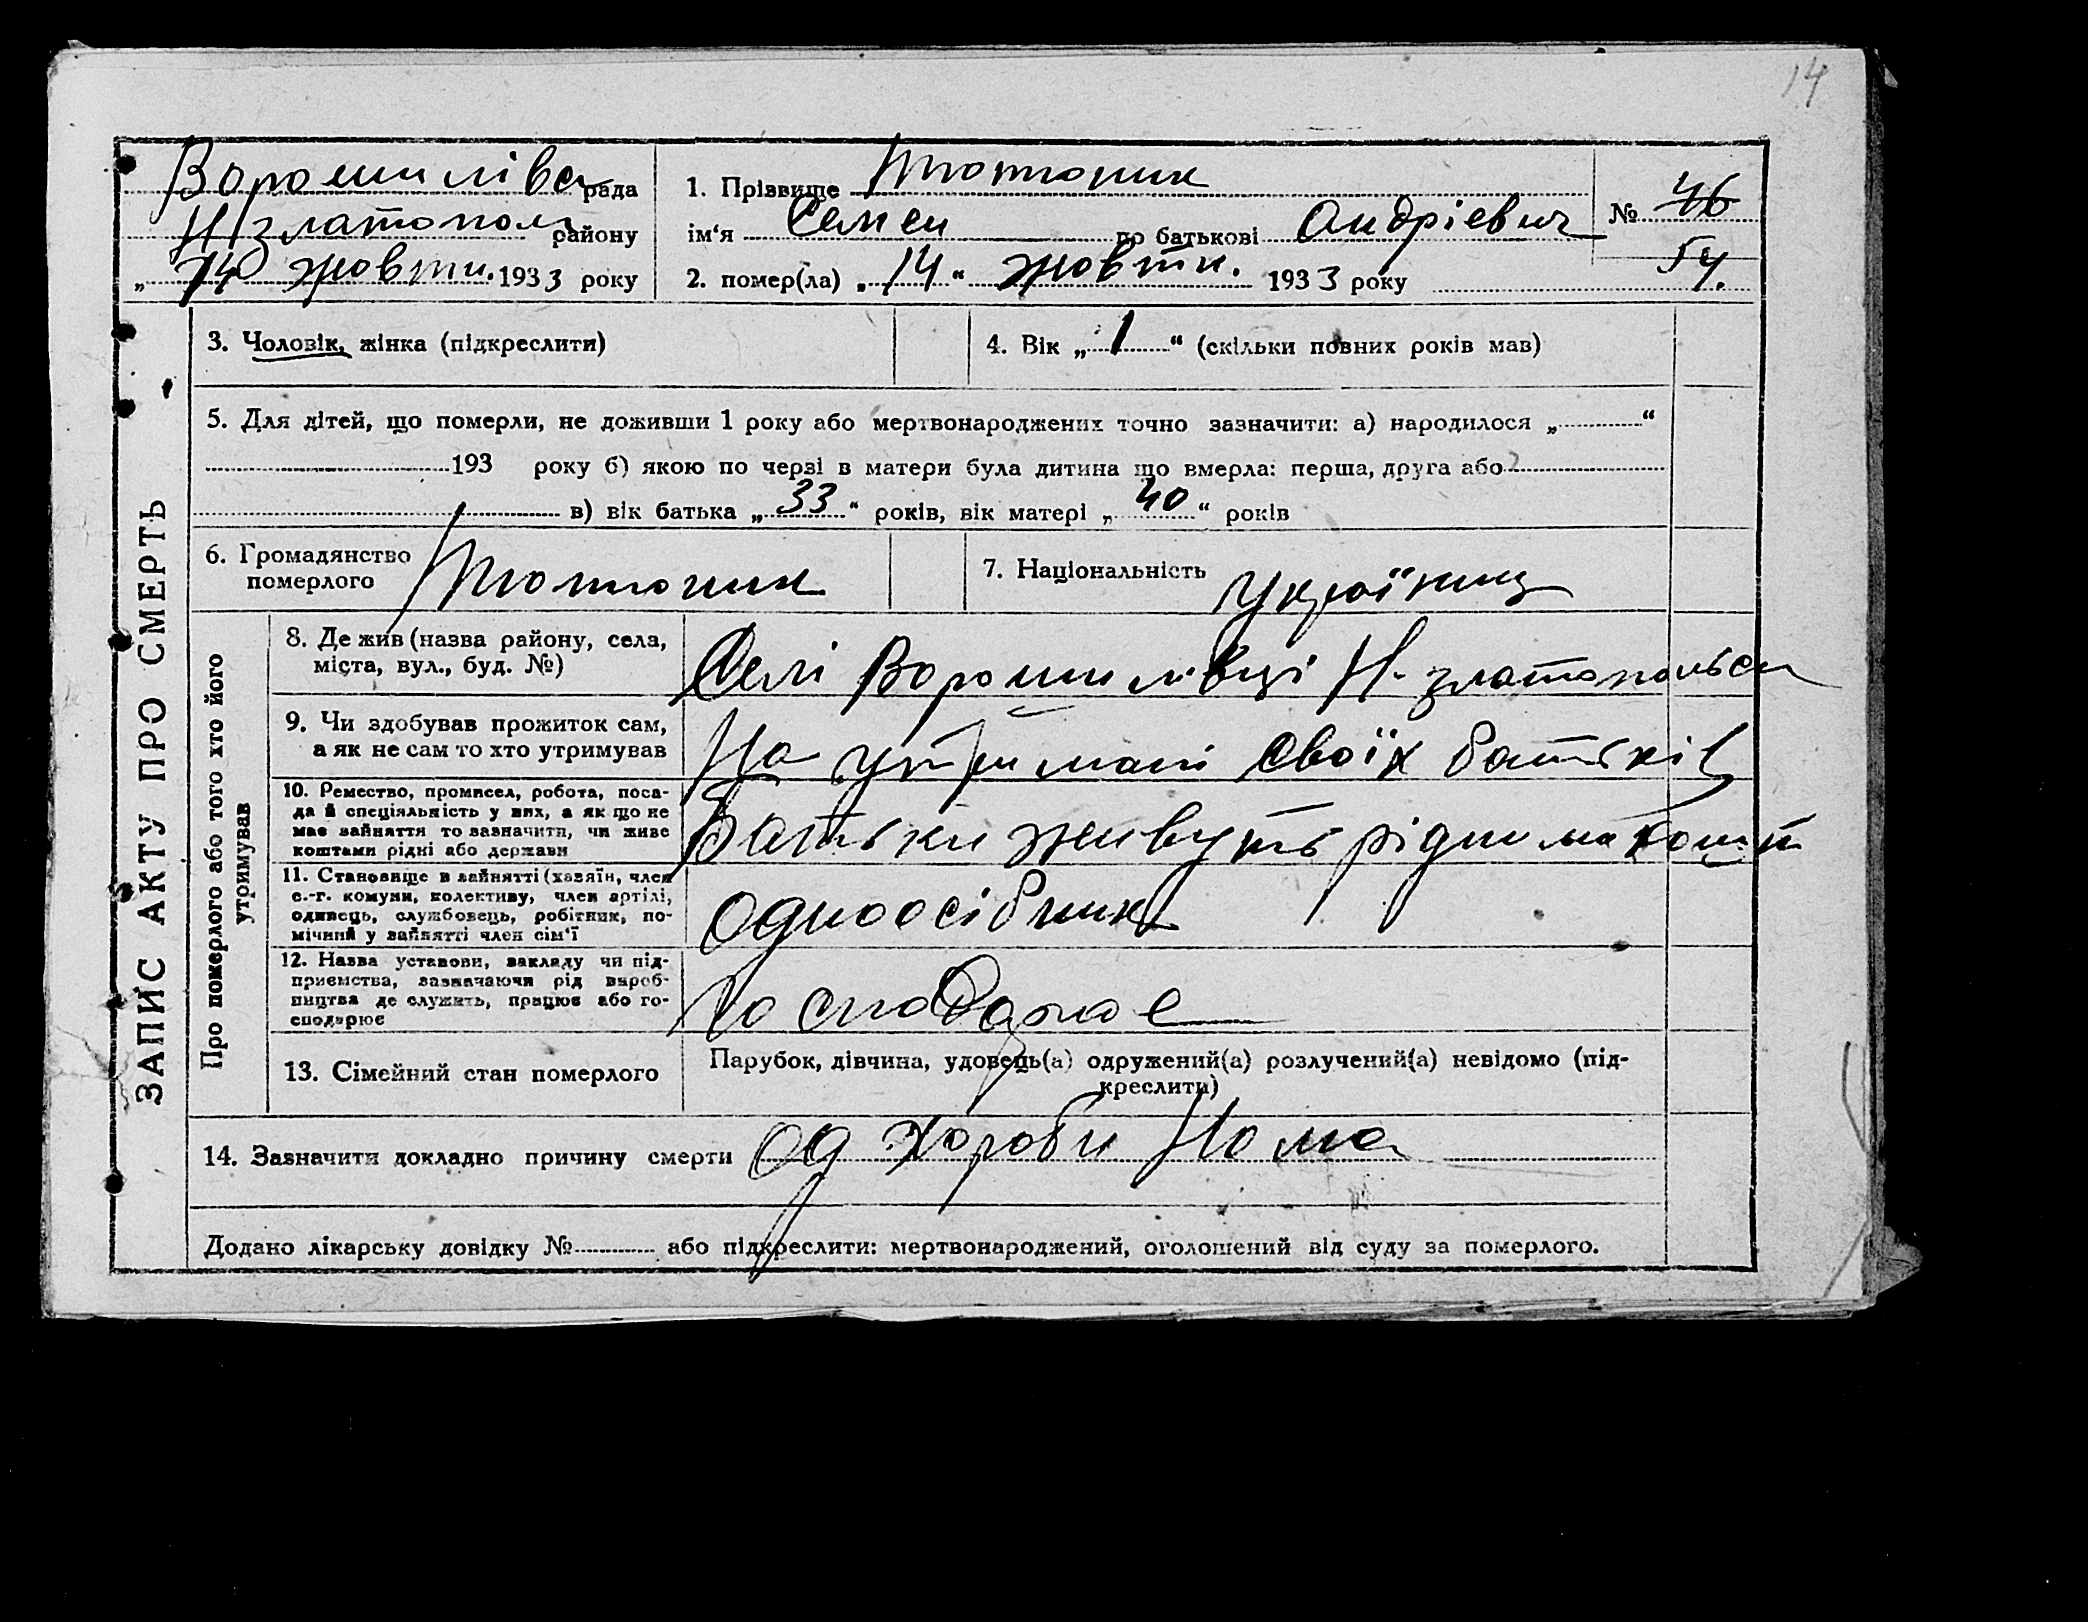 14
Ворошилівськ рада
Н златопол району
„ 14 " жовтн. 1933 року
1. Прізвище Тютюник
ім'я Семен по батькові Андрієвич
2. помер(ла) „ 14 " жовтн. 1933 року
№ 46
54.
ЗАПИС АКТУ ПРО СМЕРТЬ
3. Чоловік, жінка (підкреслити)
4. Вік „ 1 " (скільки повних років мав)
5. Для дітей, що померли, не доживши 1 року або мертвонароджених точно зазначити: а) народилося „ "
193 року б) якою по черзі в матери була дитина що вмерла: перша, друга або
в) вік батька „ 33 " років, вік матері „ 40 " років
6. Громадянство
померлого
Тютюник
7. Національність Українец
Про померлого або того хто його
утримував
8. Де жив (назва району, села,
міста, вул., буд. №)
Селі Ворошилівці Н. златопольськ
9. Чи здобував прожиток сам,
а як не сам то хто утримував
На утримані своїх батьків
10. Ремество, промисел, робота, поса-
да й спеціяльність у них, а як що не
має зайняття то зазначити, чи живе
коштами рідні або держави
Батьки живуть рідними кошт
11. Становище в зайнятті (хазяїн, член
с.-г. комуни, колективу, член артілі,
одинець, службовець, робітник, по-
мічний у зайнятті член сім'ї
одноосібник
12. Назва установи, закладу чи під-
приємства, зазначаючи рід вироб-
ництва де служить, працює або го-
сподарює
13. Сімейний стан померлого
Парубок, дівчина, удовець(а) одружений(а) розлучений(а) невідомо (під-
креслити)
14. Зазначити докладно причину смерти од хороби
Додано лікарську довідку № або підкреслити: мертвонароджений, оголошений від суду за померлого.